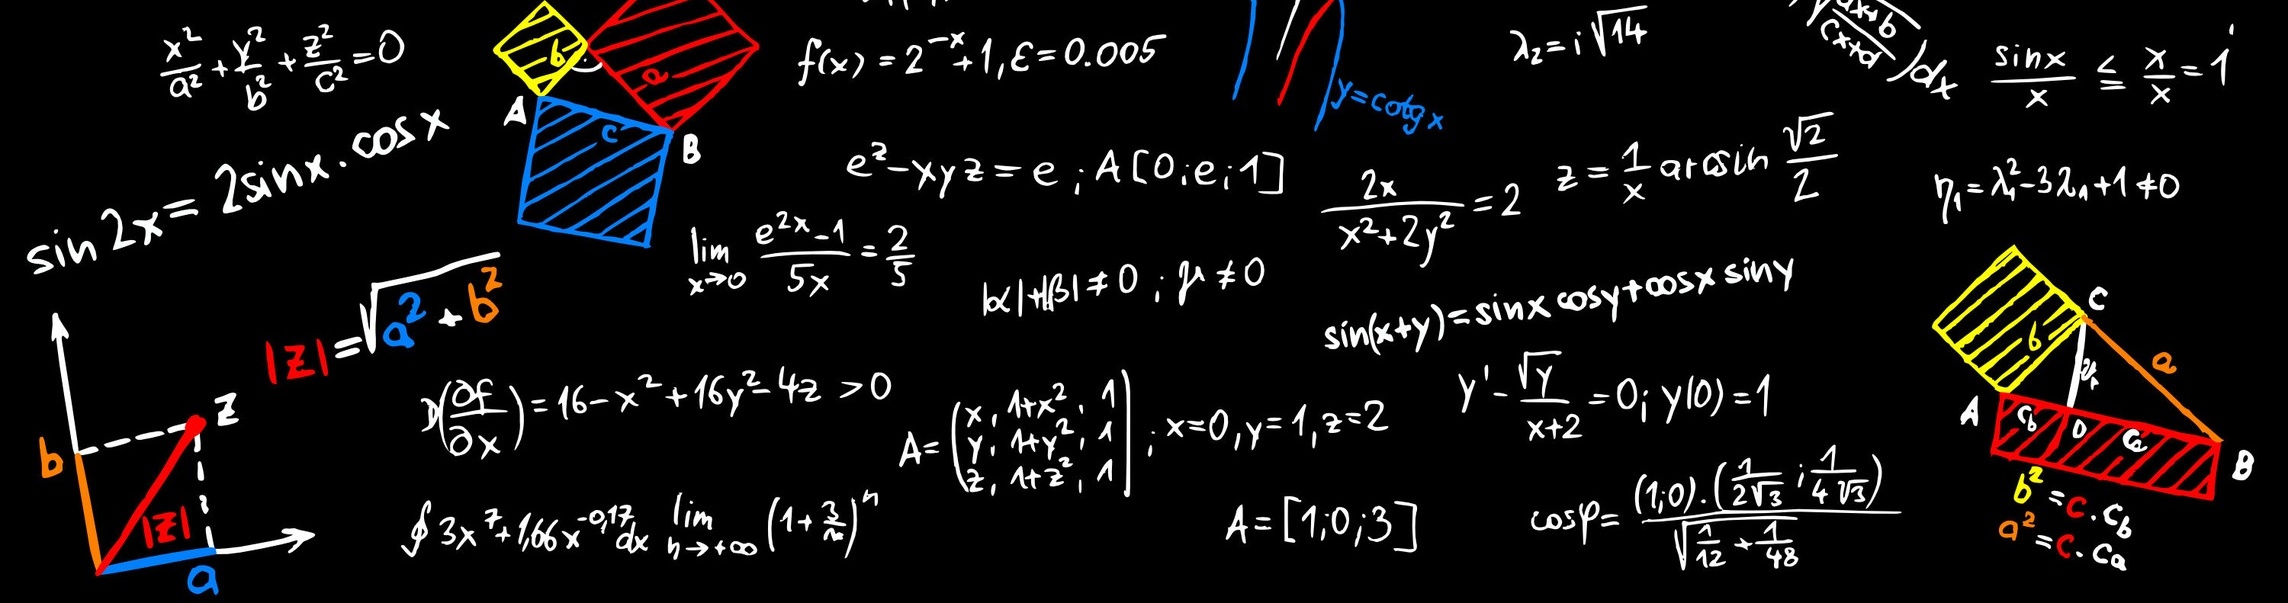 x²/a² + y²/b² + z²/c² = 0
b
a
c
A
B
f(x) = 2⁻ˣ + 1, ε = 0.005
y = cotg x
λ₂ = i√14
cx+d
)dx
sinx/x ≦ x/x = 1
sin 2x = 2sinx · cosx
e^z - xyz = e ; A[0;e;1]
2x/(x²+2y²) = 2
z = 1/x arcsin √2/2
η₁ = λ₁² - 3λ₁ + 1 ≠ 0
lim x→0 (e^(2x) - 1)/5x = 2/5
|α|+|β| ≠ 0 ;
≠ 0
sin(x+y) = sinx cosy + cosx siny
|z| = √(a² + b²)
z
b
|z|
a
(∂f/∂x) = 16 - x² + 16y² - 4z > 0
A = (x, 1+x², 1
y, 1+y², 1
z, 1+z², 1) ; x=0, y=1, z=2
y' - √y/(x+2) = 0; y(0) = 1
∮ 3x⁷ + 1,66x^(-0,17) dx
lim n→+∞ (1 + 3/n)ⁿ
A = [1;0;3]
cosφ = (1;0)·(1/(2√3) ; 1/(4√3)) / √(1/12 + 1/48)
C
b
a
A
c_b
D
c_a
B
b² = c · c_b
a² = c · c_a